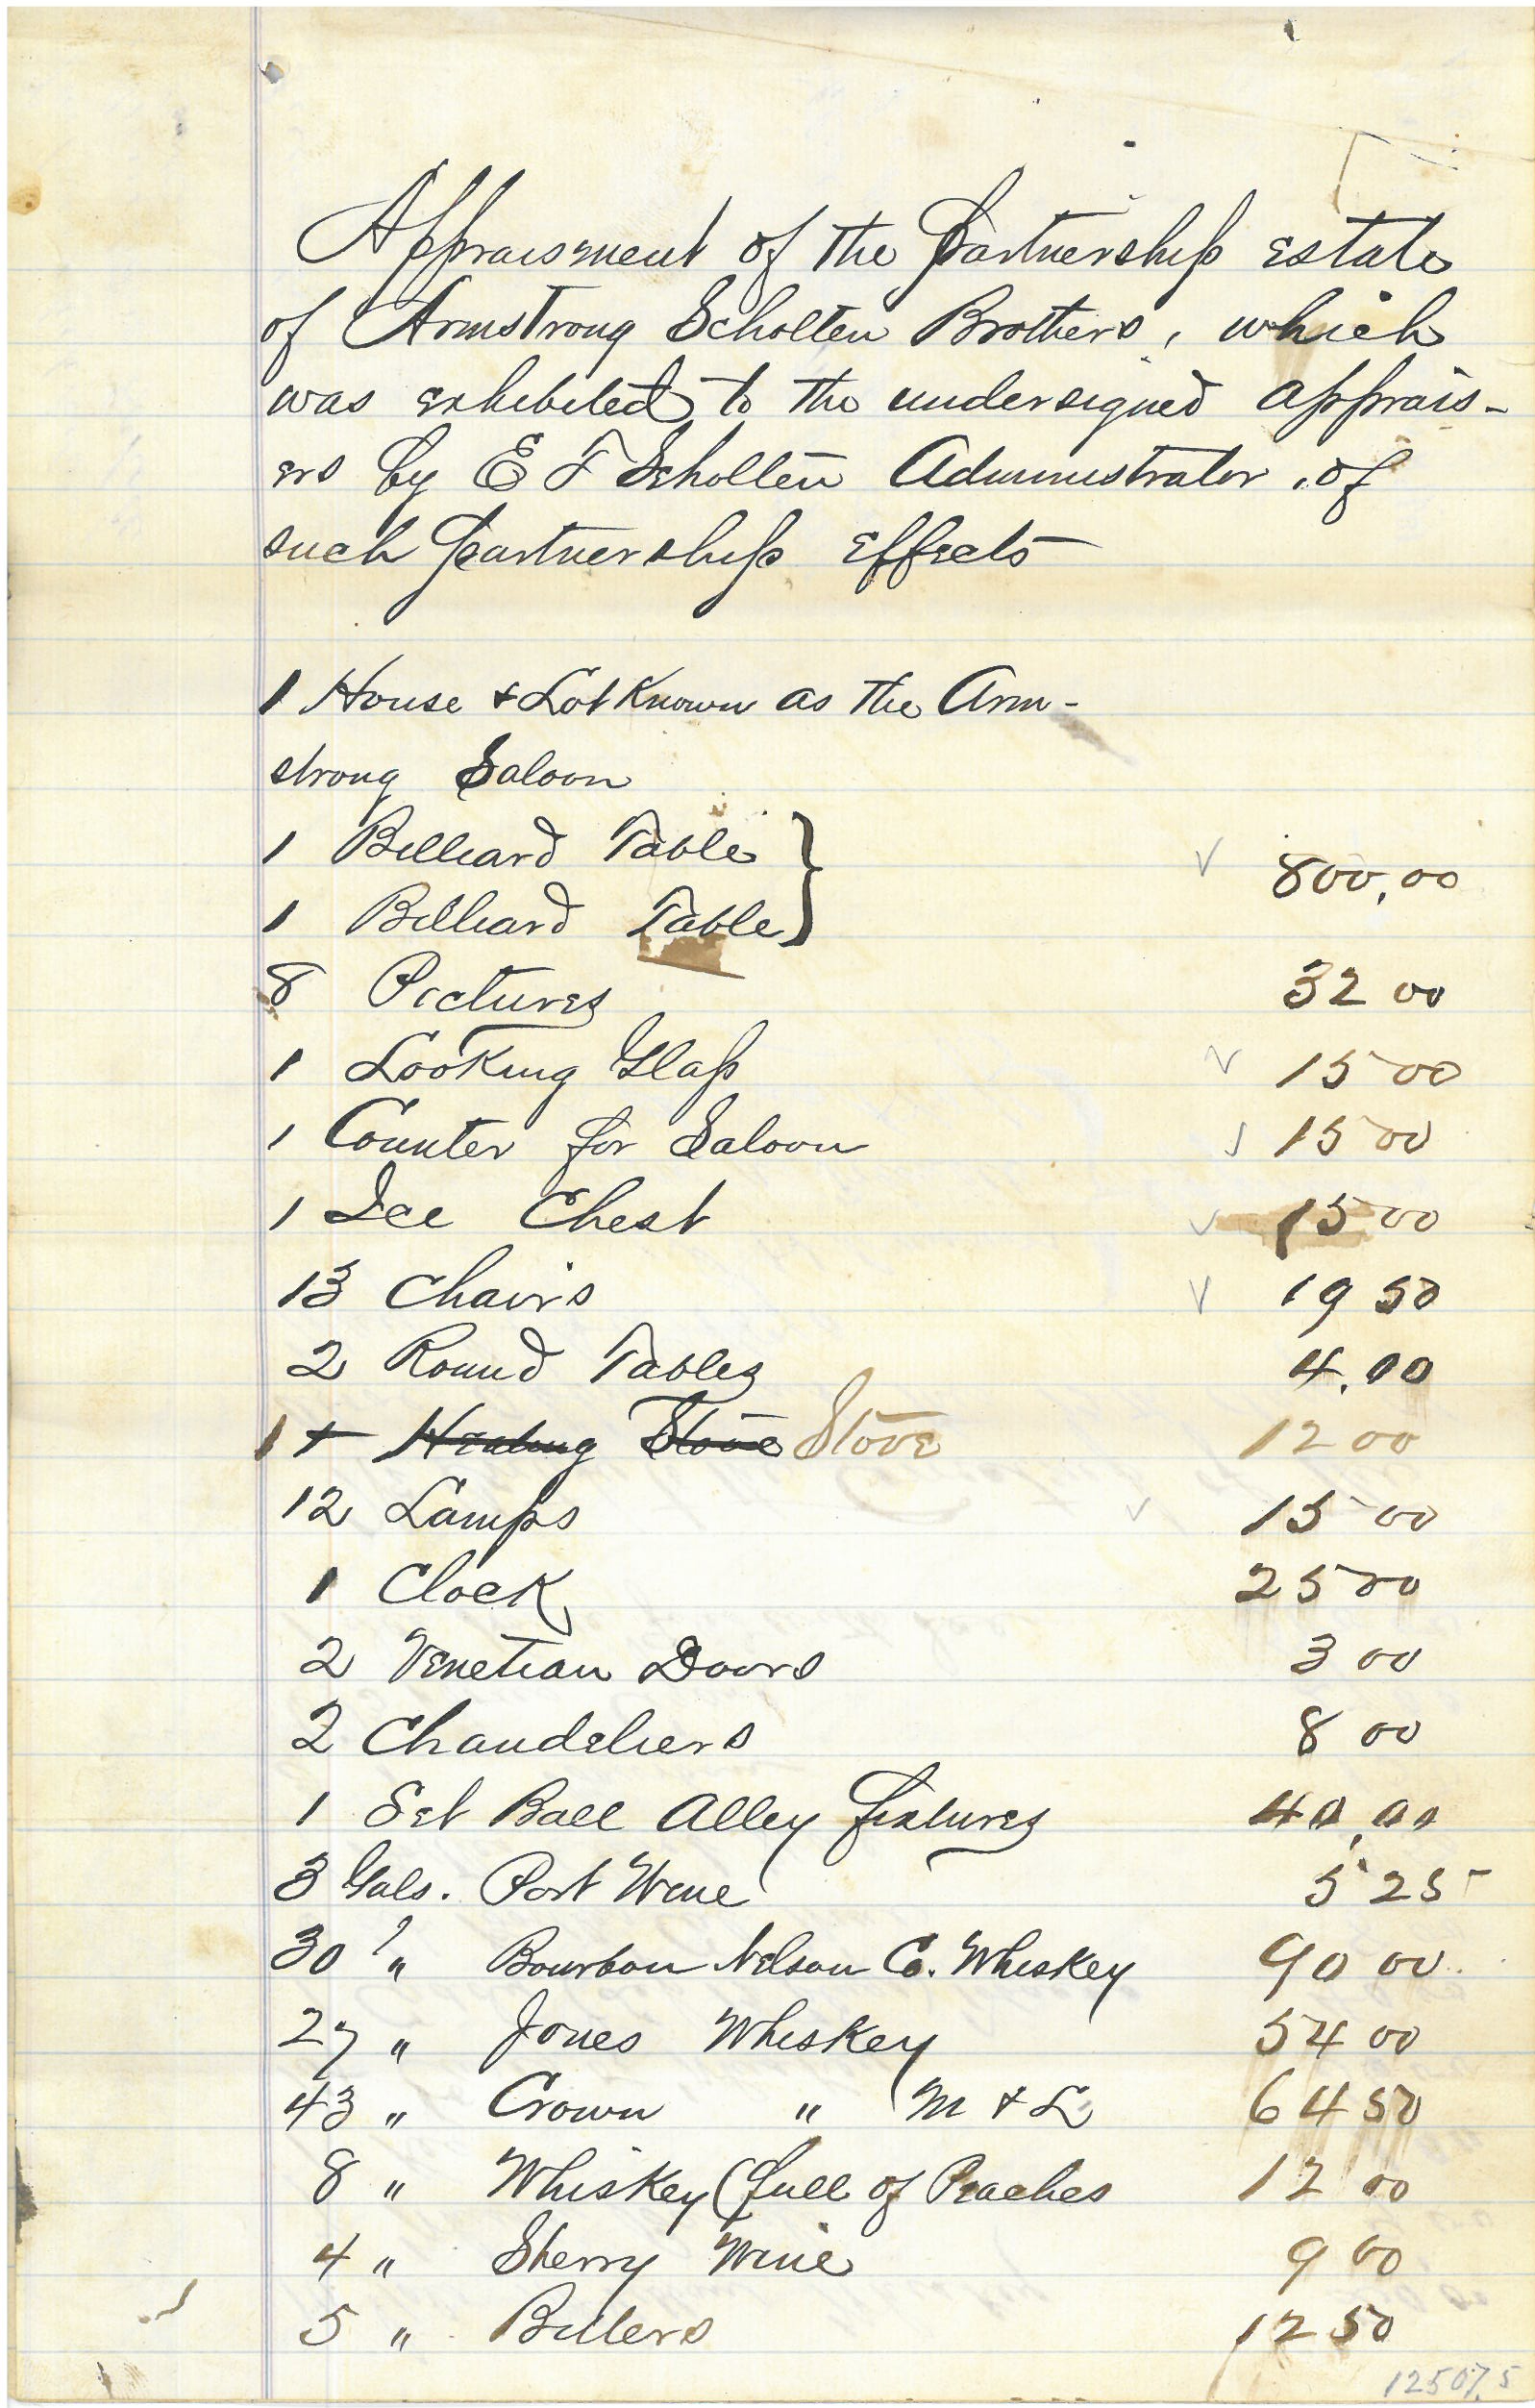 Appraisment of the Partnership estate
of Armstrong Scholten Brothers, which
was exhibited to the undersigned apprais-
ers by E F Scholten Administrator, of
such partnership effects
1 House & Lot Known as the Arm-
strong Saloon
1 Billiard Table } 800,00
1 Billiard Table
8 Pictures 32 00
1 Looking Glass 15 00
1 Counter for Saloon 15 00
1 Ice Chest 15 00
13 Chairs 19 50
2 Round Tables 4.00
1 Heating Stove Stove 12 00
12 Lamps 15 00
1 Clock 25 00
2 Venetian Doors 3 00
2 Chandeliers 8 00
1 Set Ball Alley fixtures 40,00
3 Gals. Port Wine 5 25
30 " Bourbon Nelson Co. Whiskey 90 00
27 " Jones Whiskey 54 00
43 " Crown " M & L 64 50
8 " Whiskey (full of Peaches 12 00
4 " Sherry Wine 9 00
5 " Bitters 12 50